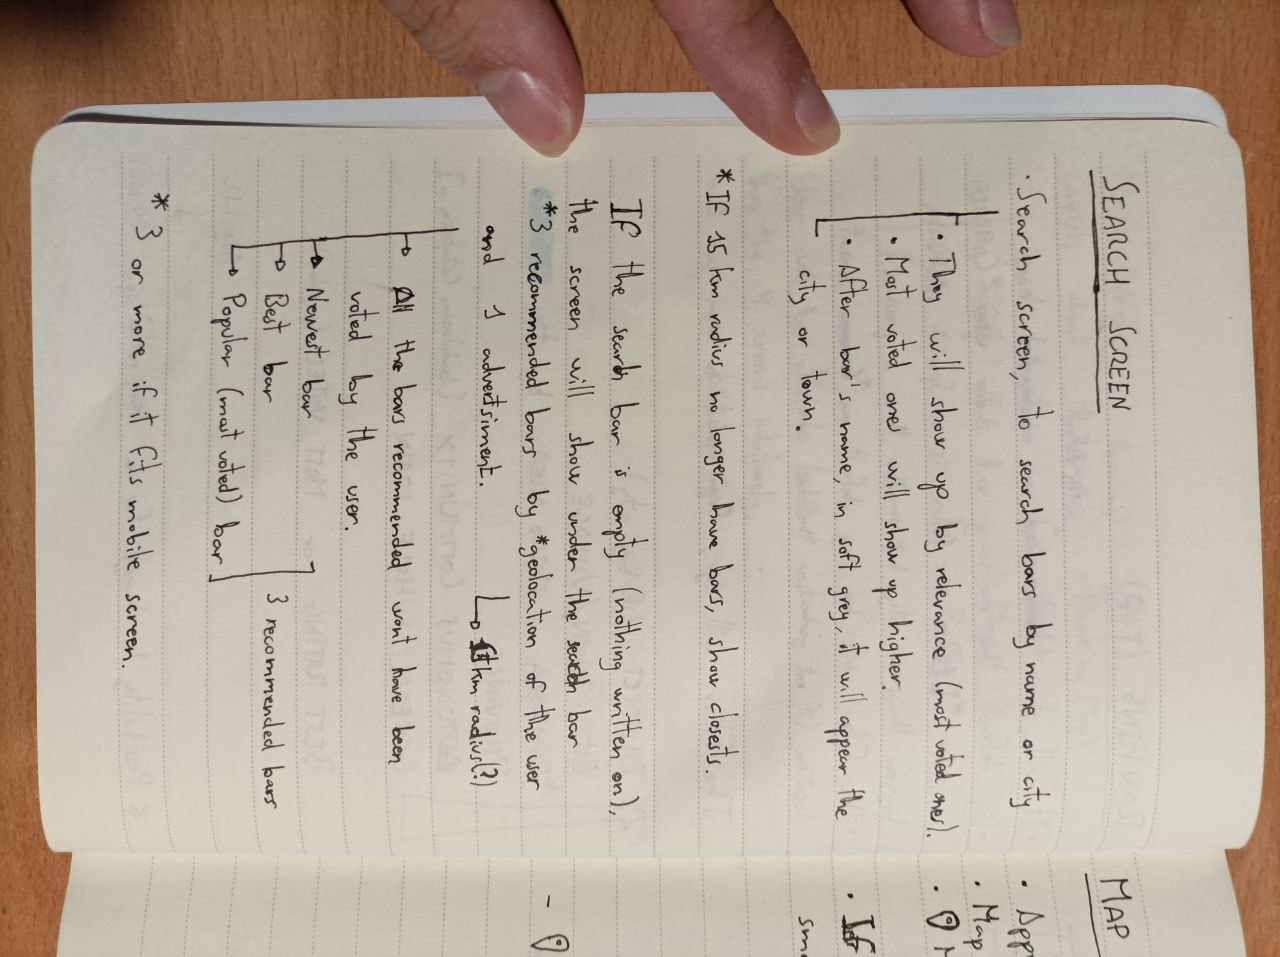 SEARCH SCREEN
· Search screen, to search bars by name or city
· They will show up by relevance (most voted ones).
· Most voted ones will show up higher.
· After bar's name, in soft grey, it will appear the
city or town.
* IF 15 km radius no longer have bars, show closests.
IF the search bar is empty (nothing written on),
the screen will show under the search bar
*3 recommended bars by *geolocation of the user
and 1 advertisment.
km radius(?)
All the bars recommended wont have been
voted by the user.
Newest bar
Best bar
Popular (most voted) bar
3 recommended bars
* 3 or more if it fits mobile screen.
MAP
· App
· Map
· M
· If
sma
-